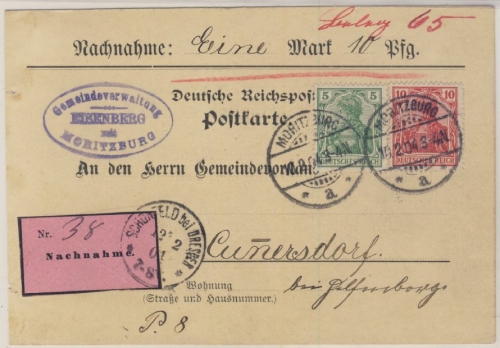 Beleg 65
Nachnahme: Eine Mark 10 Pfg.
Gemeindeverwaltung
EISENBERG
mit
MORITZBURG
Deutsche Reichspost
Postkarte
5 5
DEUTSCHES REICH
10 10
DEUTSCHES REICH
MORITZBURG
10.2.04. 3-4N.
* a *
MORITZBURG
10.2.04. 3-4N.
* a *
An den Herrn Gemeindevorstand
Nr. 38
Nachnahme.
SCHÖNFELD bei DRESDEN
2
04
7-8
Cunnersdorf.
bei Helfenberg.
Wohnung
(Straße und Hausnummer.)
P. 8